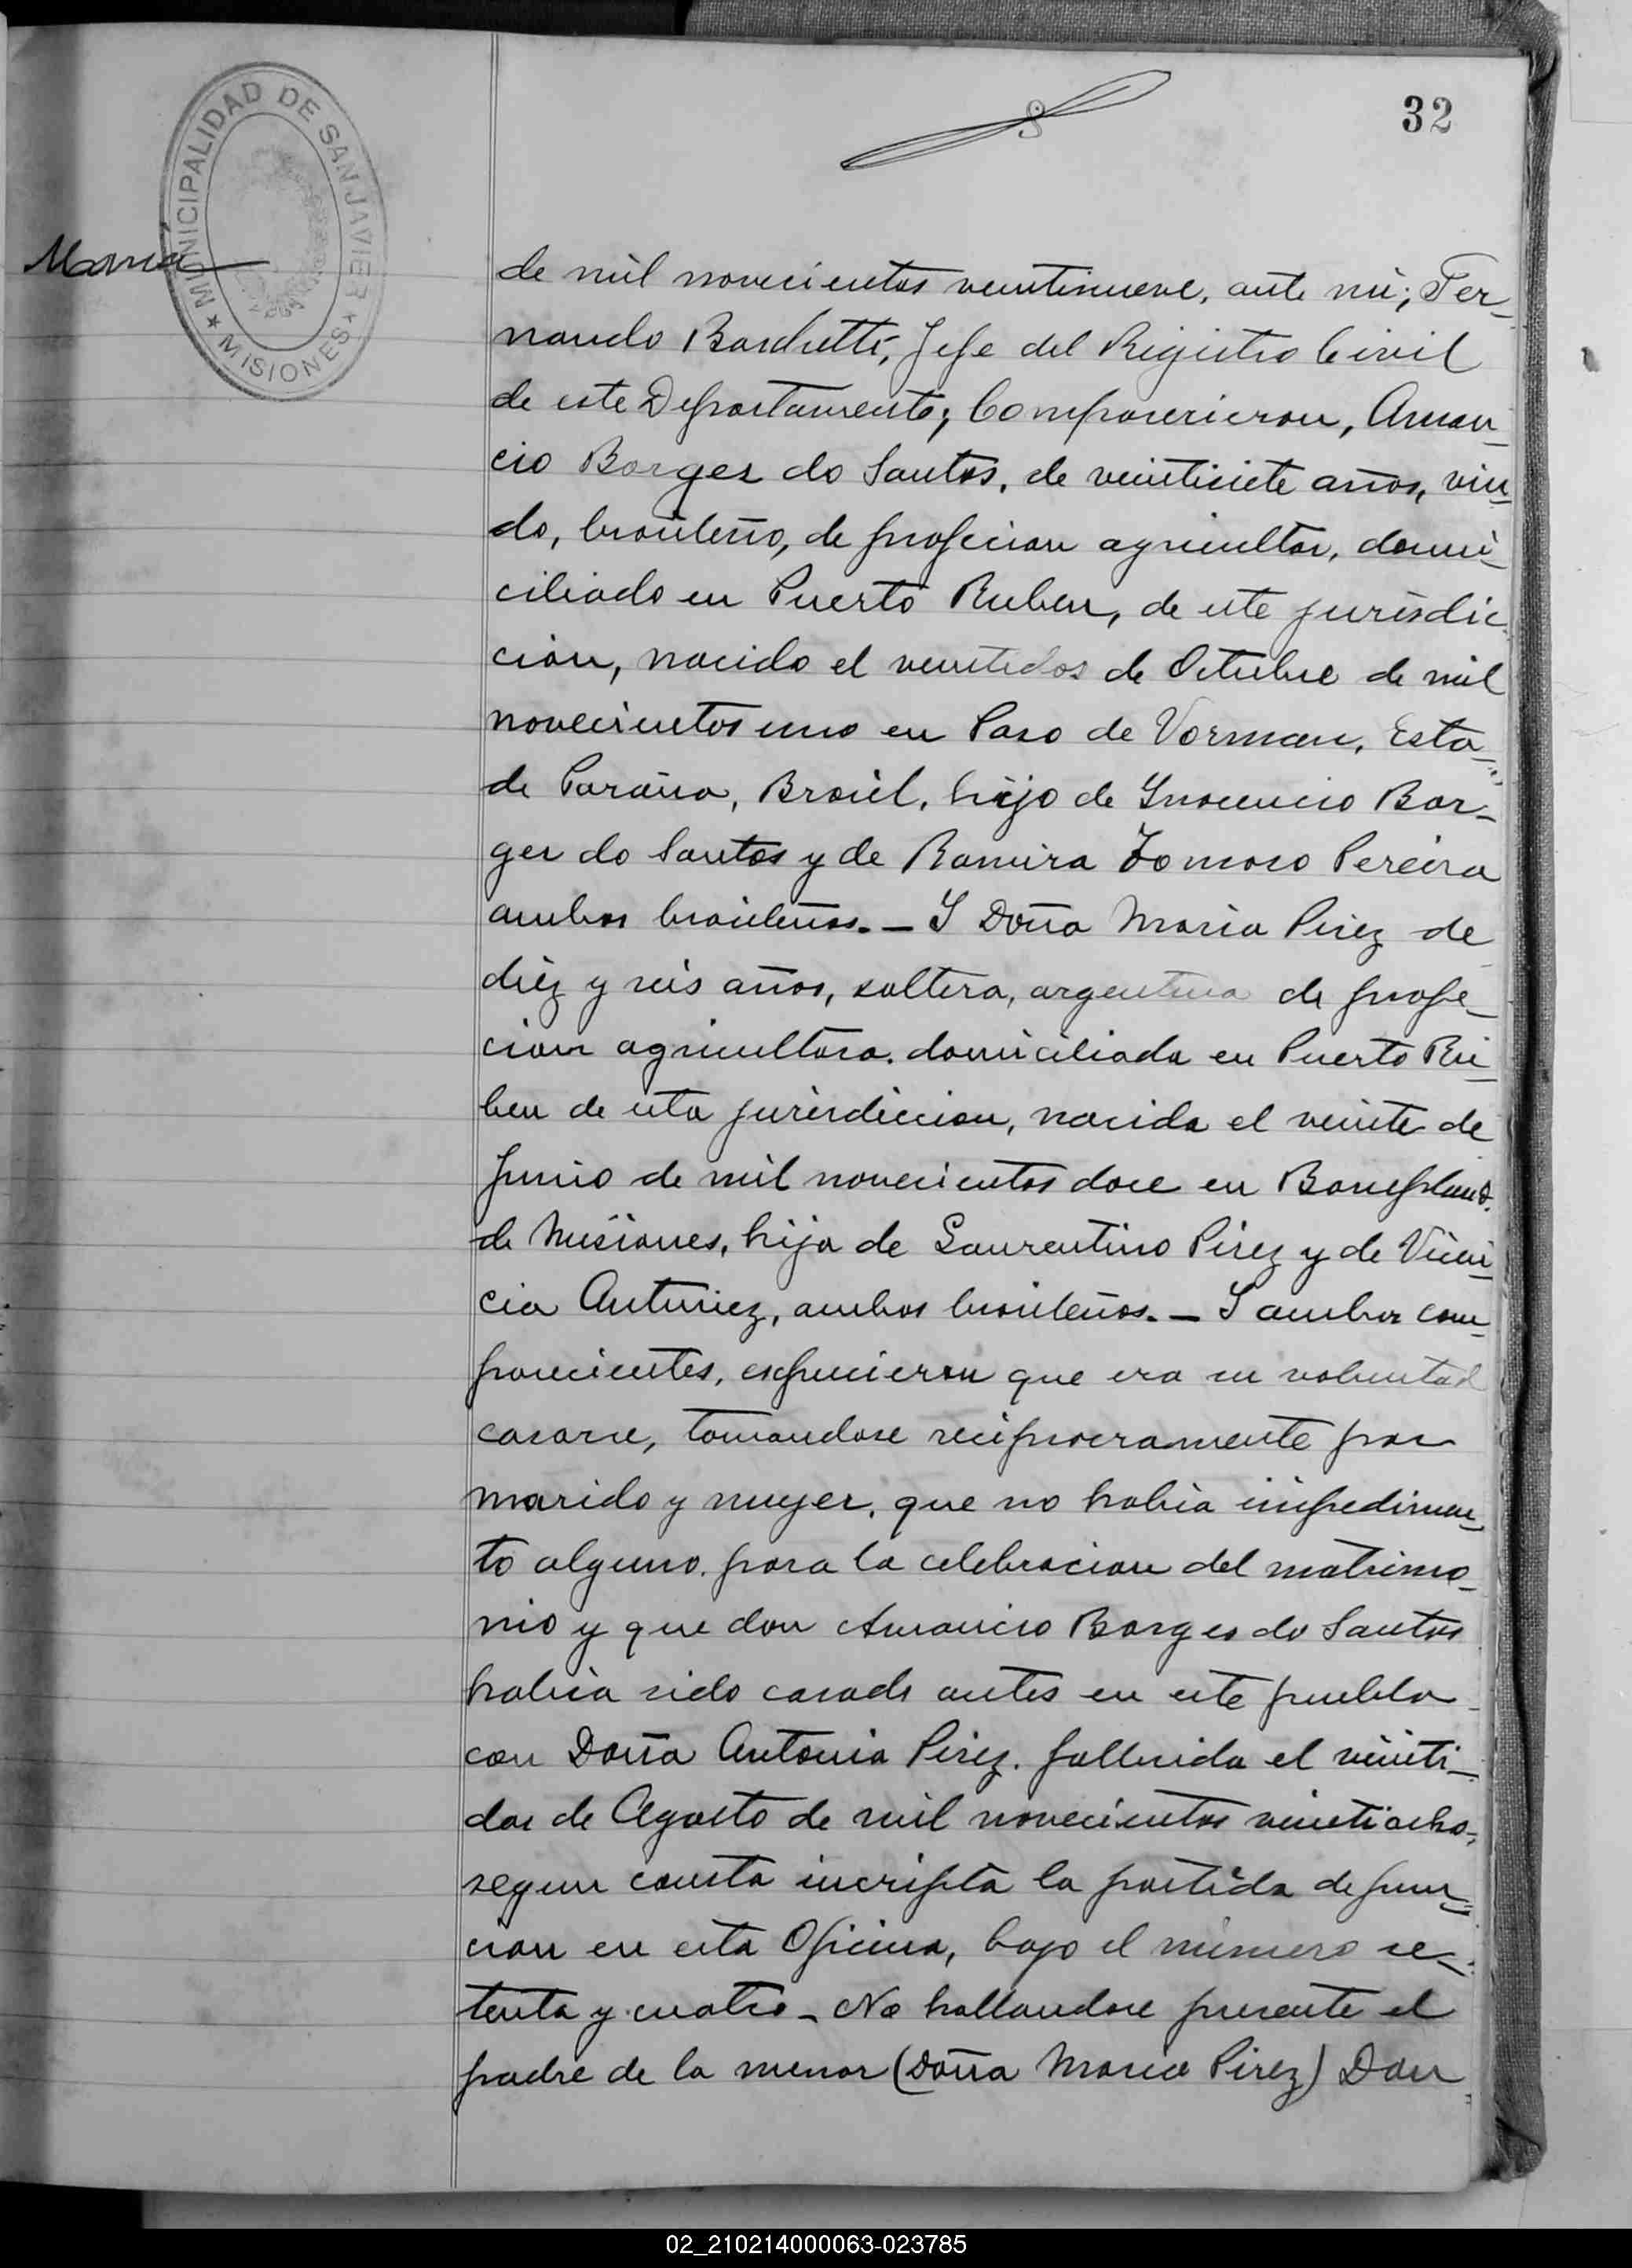 32
MUNICIPALIDAD DE SAN JAVIER
★ MISIONES ★
María
de mil novecientos veintinueve, ante mi; Fer-
nando Barchetti, Jefe del Registro Civil
de este Departamento; Comparecieron, Aman-
cio Borges do Santos, de veintisiete años, viu-
do, brasileño, de profecion agricultor, domi-
ciliado en Puerto Ruben, de este jurisdic-
cion, nacido el veintidos de Octubre de mil
novecientos uno en Paso de Vorman, Esta-
de Paraña, Brasil, hijo de Ynocencio Bor-
ges do Santos y de Ramira Fomoso Pereira
ambos brasileños. — Y Doña Maria Pirez de
diez y seis años, soltera, argentina de profe-
cion agricultora. domiciliada en Puerto Ru-
ben de esta jurisdiccion, nacida el veinte de
Junio de mil novecientos doce en Bompland.
de Misiones, hija de Laurentino Pirez y de
cia Antunez, ambos brasileños. — Y ambos com-
parecientes, espucieron que era su voluntad
casarse, tomandose reciprocramente por
marido y muger, que no habia impedimen-
to alguno. para la celebracion del matrimo-
nio y que don Amancio Borges do Santos
habia sido casado antes en este pueblo
con Doña Antonia Pirez. fallecida el veinti-
dos de Agosto de mil novecientos veintiocho,
segun consta incripta la partida defun-
cion en esta Oficina, bajo el número se-
tenta y cuatro - No hallandose presente el
padre de la menor (Doña Maria Pirez) Don
02_210214000063-023785